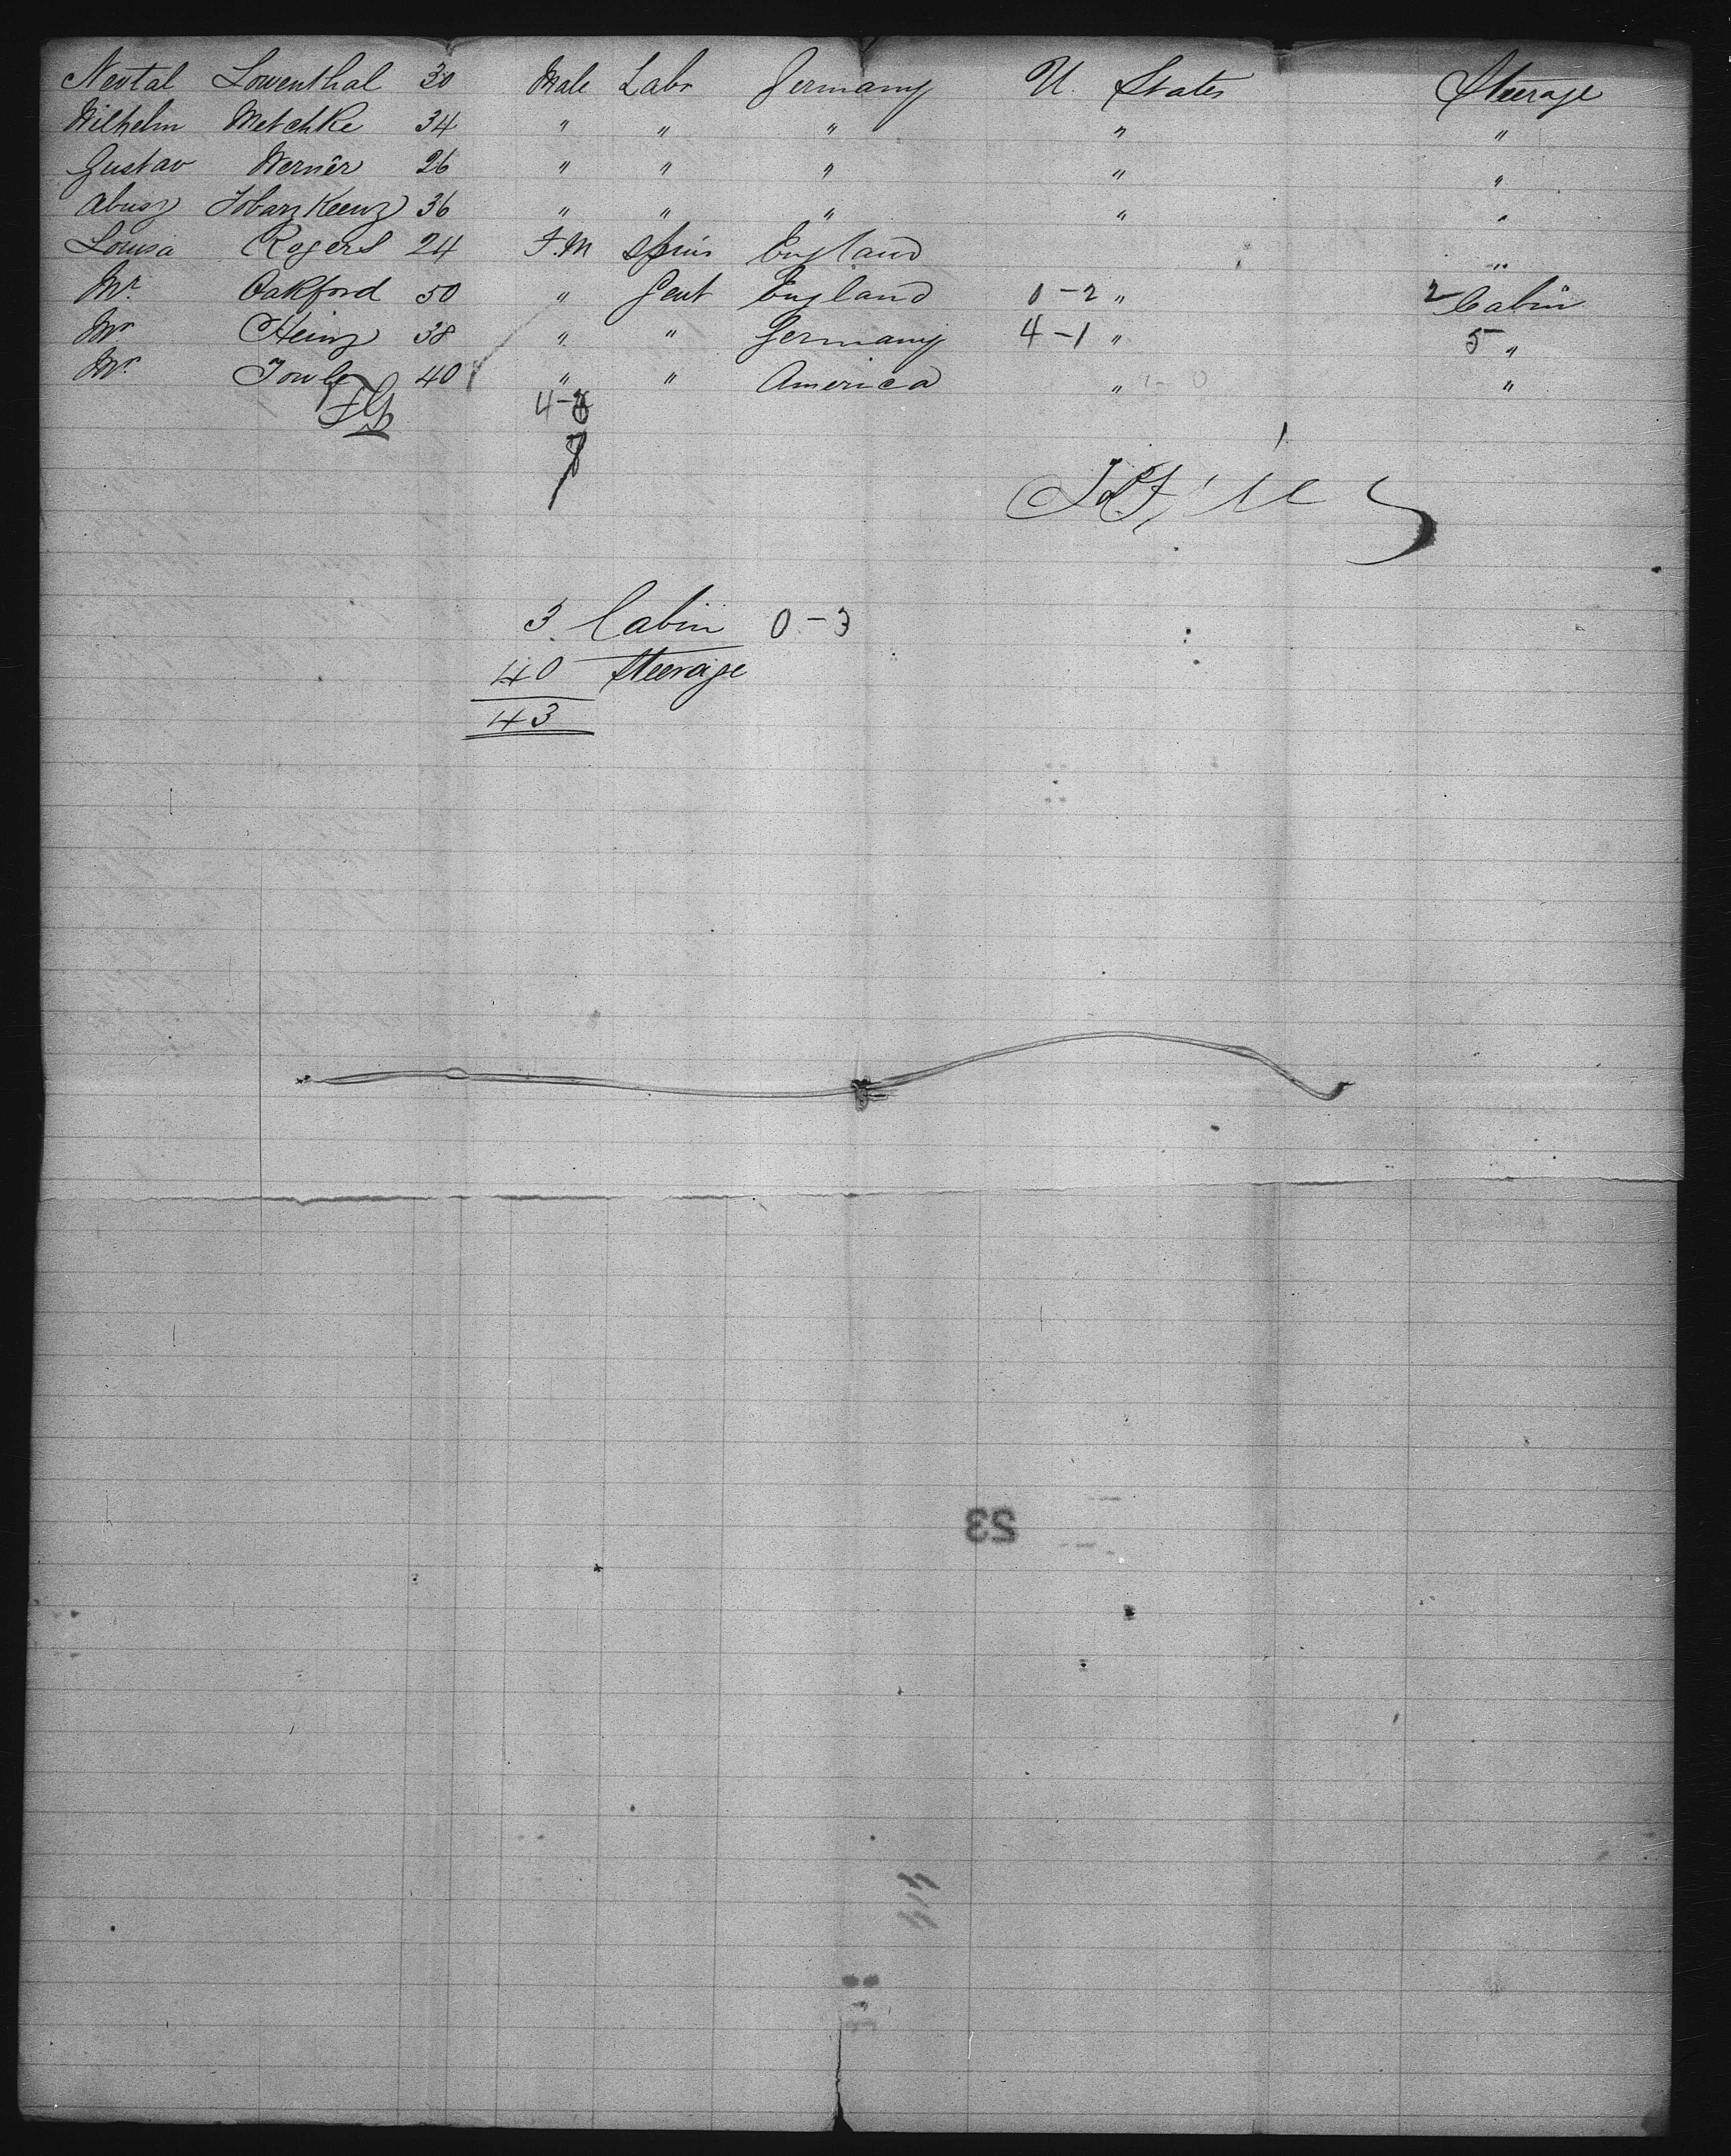 Nestal Lowenthal 30 Male Labr Germany U. States Steerage
Wilhelm Metchke 34 " " " " "
Gustav Werner 26 " " " " "
Abusz 36 " " " " "
Louisa Rogers 24 F.M Spins England "
Mr. Oakford 50 " Gent England 0-2 " 2 Cabin
Mr Heinz 38 " " Germany 4-1 " 5 "
Mr. Towle 40 " " America " 1-0 "
3 Cabin 0-3
40 Steerage
43
23